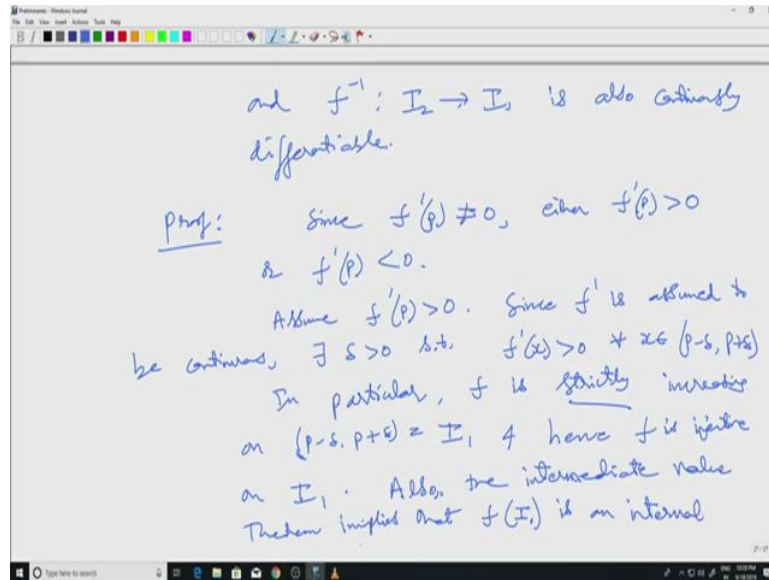 Preliminaries - Windows Journal
File Edit View Insert Actions Tools Help
and f⁻¹ : I₂ → I₁ is also continuously
differentiable.
Proof: Since f'(p) ≠ 0, either f'(p) > 0
or f'(p) < 0.
Assume f'(p) > 0. Since f' is assumed to
be continuous, ∃ δ > 0 s.t. f'(x) > 0 ∀ x ∈ (p-δ, p+δ)
In particular, f is strictly increasing
on (p-δ, p+δ) = I₁ & hence f is injective
on I₁. Also, the intermediate value
Theorem implies that f(I₁) is an interval
27/27
Type here to search